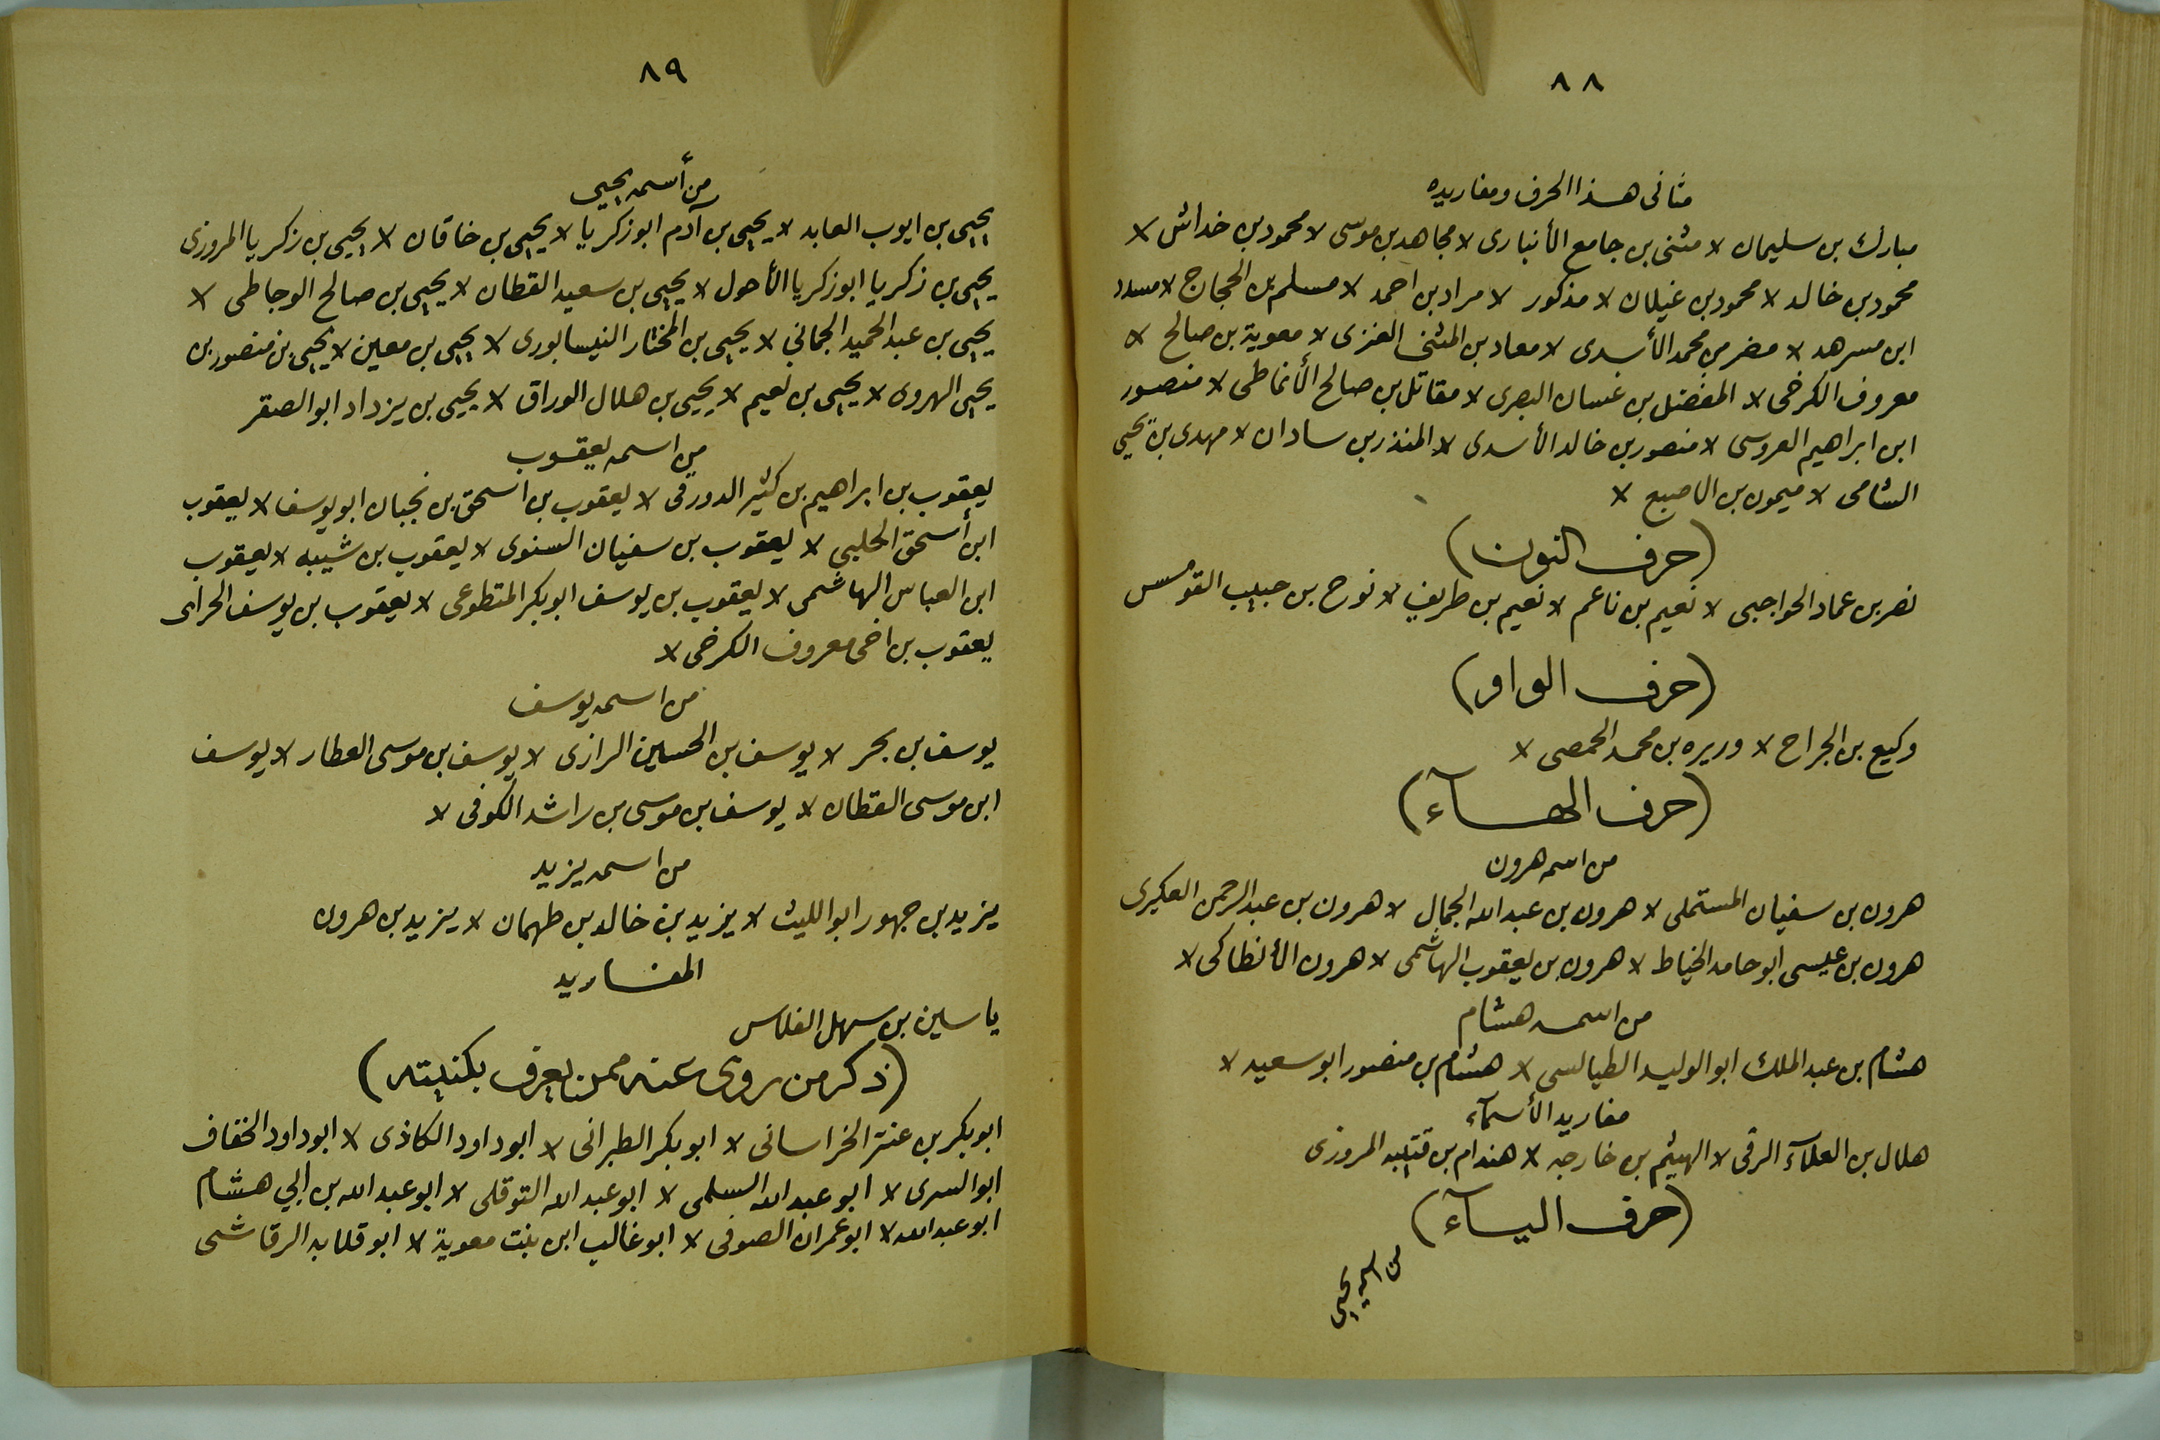 ٨٨
مثانى هذا الحرف ومفاريده
مبارك بن سليمان لا مثنى بن جامع الأنبارى لا مجاهد بن موسى لا محمود بن خداش لا
محمود بن خالد لا محمود بن غيلان لا مذكور لا مراد بن احمد لا مسلم بن الحجاج لا مسدد
ابن مسرهد لا مضر بن محمد الأسدى لا معاد بن المثنى العنزى لا معوية بن صالح لا
معروف الكرخى لا المفضل بن غسان البصرى لا مقاتل بن صالح الأنماطى لا منصور
ابن ابراهيم العروسى لا منصور بن خالد الأسدى لا المنذر بن سادان لا مهدى بن يحيى
الشامى لا ميمون بن الاصبع لا
(حرف النون)
نصر بن عماد الحواجبى لا نعيم بن ناعم لا نعيم بن طريف لا نوح بن حبيب القومسى
(حرف الواو)
وكيع بن الجراح لا وريره بن محمد الحمصى لا
(حرف الهآء)
من اسمه هرون
هرون بن سفيان المستملى لا هرون بن عبد الله الجمال لا هرون بن عبد الرحمن العكبرى
هرون بن عيسى ابو حامد الخياط لا هرون بن يعقوب الهاشمى لا هرون الأنطاكى لا
من اسمه هشام
هشام بن عبد الملك ابو الوليد الطيالسى لا هشام بن منصور ابو سعيد لا
مفاريد الأسمآء
هلال بن العلآء الرقى لا الهيثم بن خارجه لا هندام بن قتيبه المروزى
(حرف اليآء)
من اسمه يحيى
٨٩
من أسمه يحيى
يحيى بن ايوب العابد لا يحيى بن آدم ابو زكريا لا يحيى بن خاقان لا يحيى بن زكريا المروزى
يحيى بن زكريا ابو زكريا الأحول لا يحيى بن سعيد القطان لا يحيى بن صالح الوحاطى لا
يحيى بن عبد الحميد الجمانى لا يحيى بن المختار النيسابورى لا يحيى بن معين لا يحيى بن منصور بن
يحيى الهروى لا يحيى بن نعيم لا يحيى بن هلال الوراق لا يحيى بن يزداد ابو الصقر
من اسمه يعقوب
يعقوب بن ابراهيم بن كثير الدورقى لا يعقوب بن اسحق بن نجبان ابو يوسف لا يعقوب
ابن أسحق الحلبى لا يعقوب بن سفيان السنوى لا يعقوب بن شيبه لا يعقوب
ابن العباس الهاشمى لا يعقوب بن يوسف ابو بكر المتطوعى لا يعقوب بن يوسف الحرابى
يعقوب بن اخى معروف الكرخى لا
من اسمه يوسف
يوسف بن بحر لا يوسف بن الحسين الرازى لا يوسف بن موسى العطار لا يوسف
ابن موسى القطان لا يوسف بن موسى بن راشد الكوفى لا
من اسمه يزيد
يزيد بن جمهور ابو الليث لا يزيد بن خالد بن طهمان لا يزيد بن هرون
المفاريد
ياسين بن سهل الفلاس
(ذكر من روى عنه ممن يعرف بكنيته)
ابو بكر بن عنتر الخراسانى لا ابو بكر الطبرانى لا ابو داود الكاذى لا ابو داود الخفاف
ابو السرى لا ابو عبد الله السلمى لا ابو عبد الله التوقلى لا ابو عبد الله بن ابي هشام
ابو عبد الله لا ابو عمران الصوفى لا ابو غالب ابن بنت معوية لا ابو قلابه الرقاشى